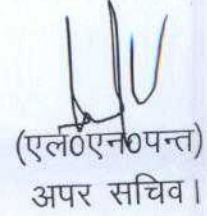 (एल०एन०पन्त)
अपर सचिव।